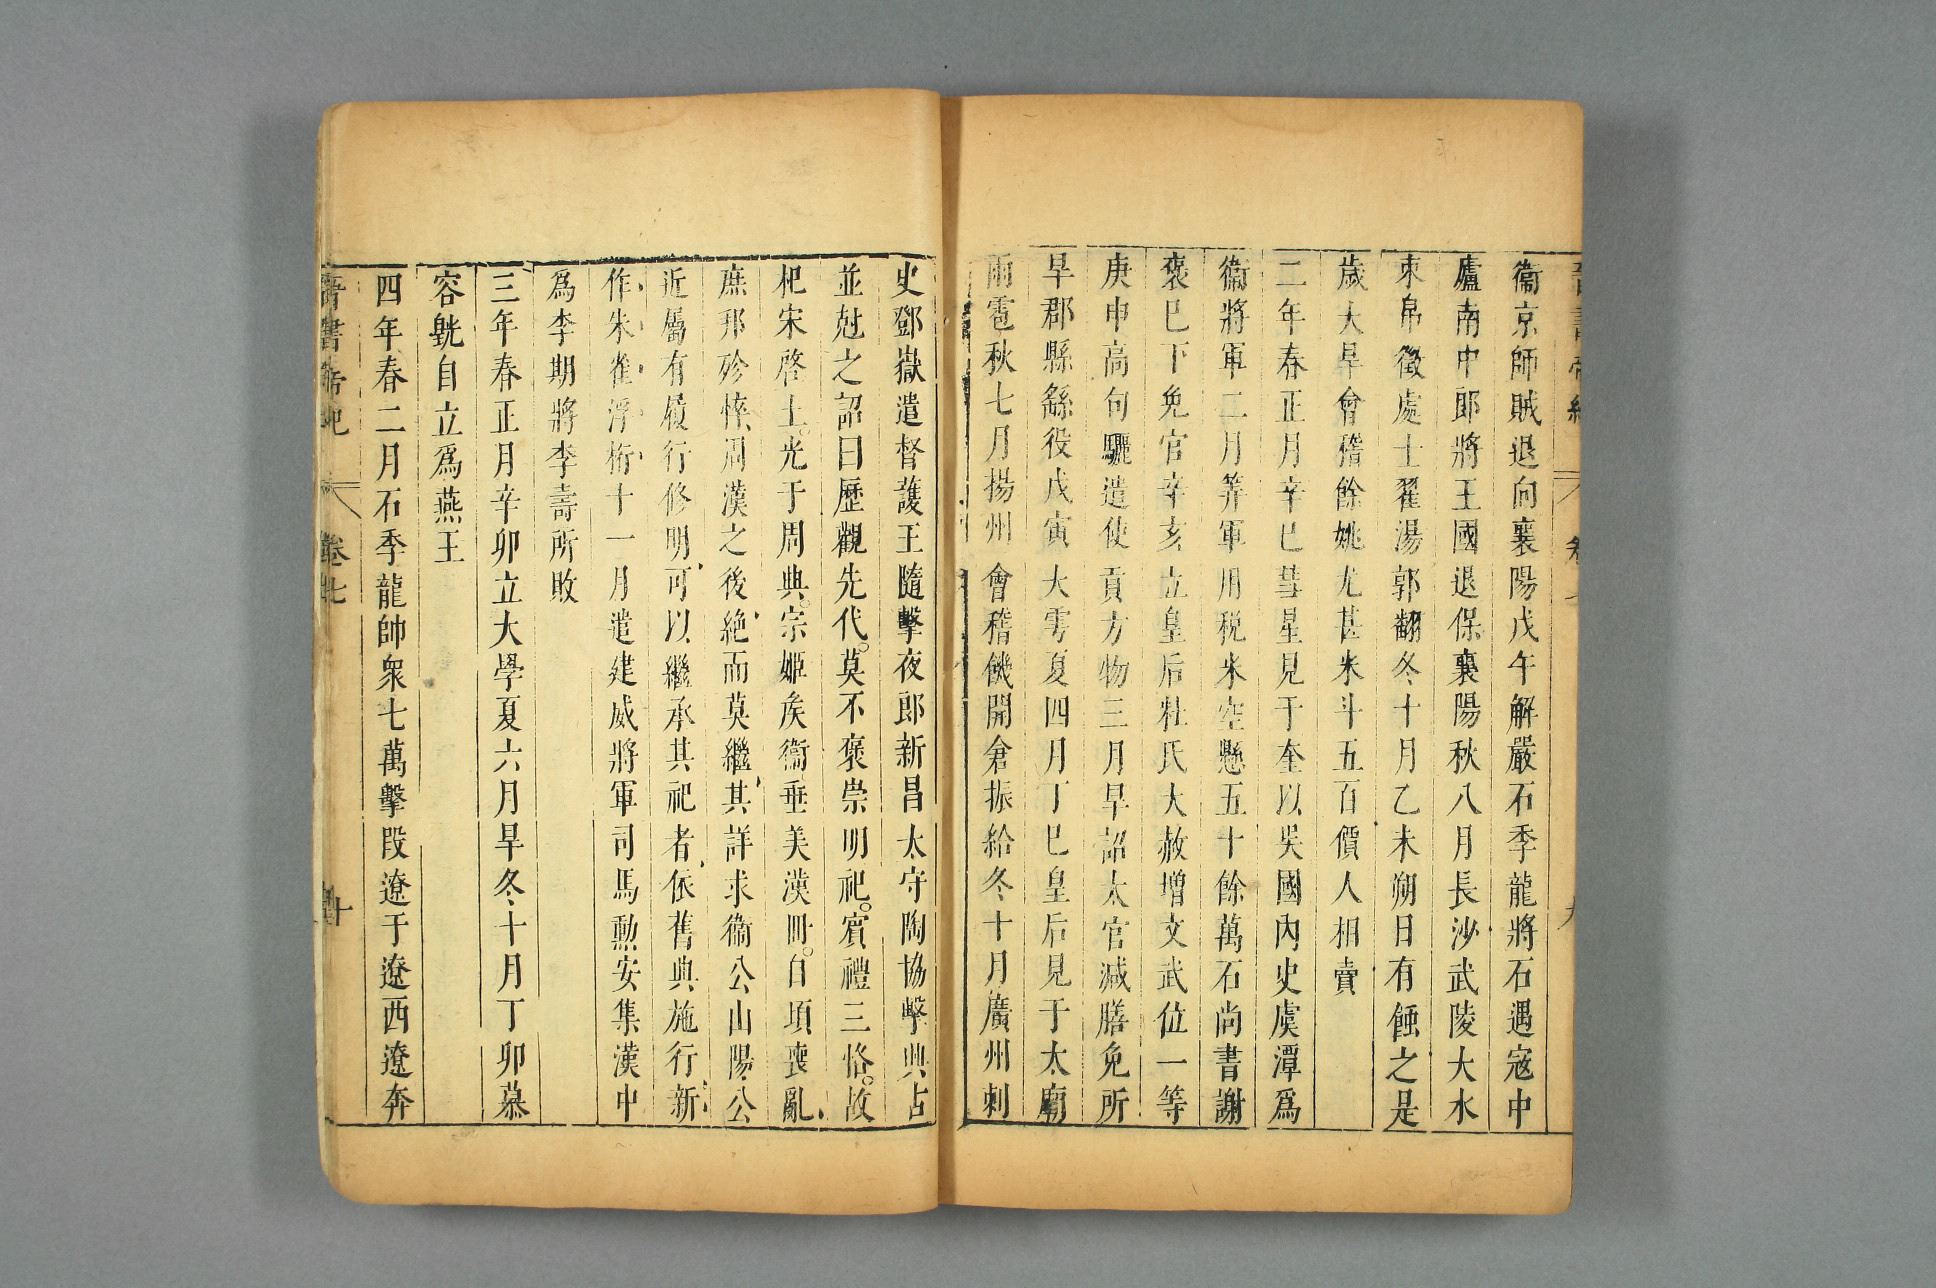 衞京師賊退向襄陽戊午解嚴石季龍將石遇寇中
廬南中郎將王國退保襄陽秋八月長沙武陵大水
束帛徵處士翟湯郭翻冬十月乙未朔日有蝕之是
歲大旱會稽餘姚尤甚米斗五百價人相賣
二年春正月辛巳彗星見于奎以吳國內史虞潭爲
衞將軍二月筭軍用稅米空懸五十餘萬石尚書謝
褒巳下免官辛亥立皇后杜氏大赦增文武位一等
庚申高句驪遣使貢方物三月旱詔太官減膳免所
旱郡縣繇役戊寅大雩夏四月丁巳皇后見于太廟
雨雹秋七月揚州會稽饑開倉振給冬十月廣州刺
史鄧嶽遣督護王隨擊夜郎新昌太守陶協擊興古
並尅之詔曰歷觀先代。莫不褒崇明祀。賓禮三恪。故
杞宋啓土。光于周典。宗姬侯衞垂美漢冊。自頃喪亂
庶邦殄悴、周漢之後、絶而莫繼、其詳求衞公山陽公
近屬有履行修明、可以繼承其祀者、依舊典施行、新
作朱雀浮桁十一月遣建威將軍司馬勳安集漢中
爲李期將李壽所敗
三年春正月辛卯立大學夏六月旱冬十月丁卯慕
容皝自立爲燕王
四年春二月石季龍帥衆七萬擊段遼于遼西遼奔
晉書帝紀 卷七 十